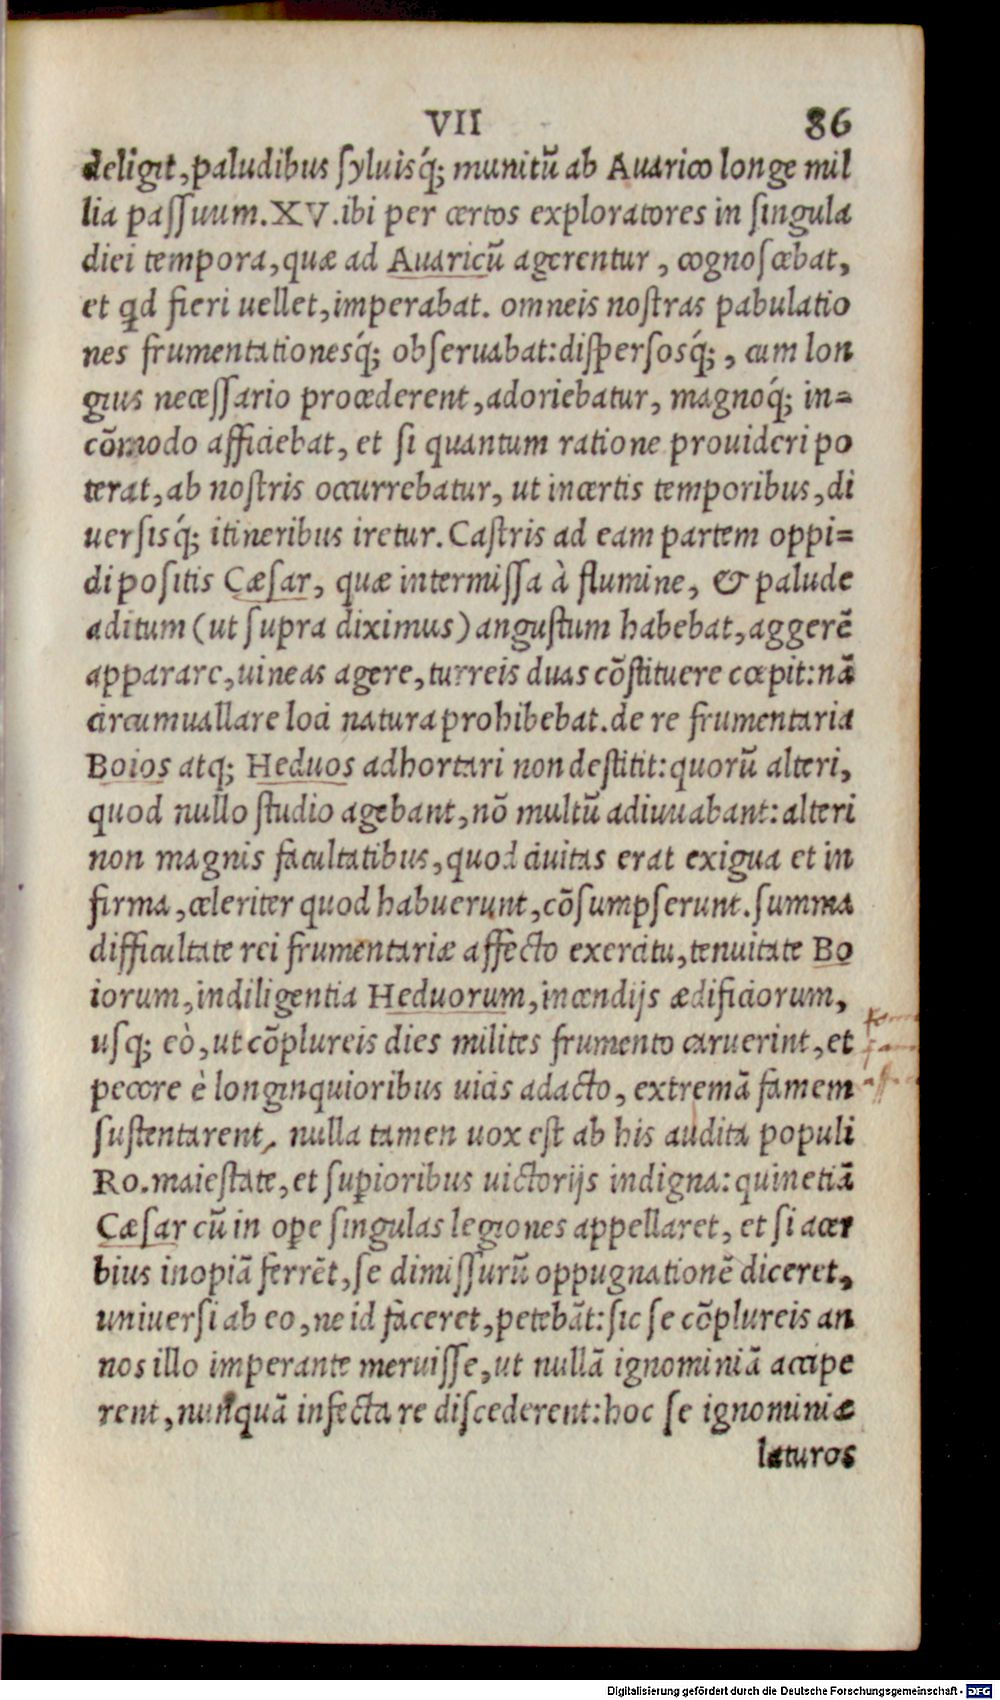 VII 86
deligit, paludibus syluisq́; munitũ ab Auarico longe mil
lia passuum. XV. ibi per certos exploratores in singula
diei tempora, quæ ad Auaricũ agerentur, cognoscebat,
et qd fieri uellet, imperabat. omneis nostras pabulatio
nes frumentationesq́; obseruabat: dispersosq́;, cum lon
gius necessario procederent, adoriebatur, magnoq́; in=
cõmodo afficiebat, et si quantum ratione prouideri po
terat, ab nostris occurrebatur, ut incertis temporibus, di
uersisq́; itineribus iretur. Castris ad eam partem oppi=
di positis Cæsar, quæ intermissa à flumine, & palude
aditum (ut supra diximus) angustum habebat, aggerẽ
apparare, uineas agere, turreis duas cõstituere cœpit: nã
circumuallare loci natura prohibebat. de re frumentaria
Boios atq; Heduos adhortari non destitit: quorũ alteri,
quod nullo studio agebant, nõ multũ adiuuabant: alteri
non magnis facultatibus, quod ciuitas erat exigua et in
firma, celeriter quod habuerunt, cõsumpserunt. summa
difficultate rei frumentariæ affecto exercitu, tenuitate Bo
iorum, indiligentia Heduorum, incendijs ædificiorum,
usq; eò, ut cõplureis dies milites frumento caruerint, et
pecore è longinquioribus uicis adacto, extremã famem
sustentarent, nulla tamen uox est ab his audita populi
Ro. maiestate, et supioribus uictorijs indigna: quinetiã
Cæsar cũ in ope singulas legiones appellaret, et si acer
bius inopiã ferrẽt, se dimissurũ oppugnationẽ diceret,
uniuersi ab eo, ne id faceret, petebãt: sic se cõplureis an
nos illo imperante meruisse, ut nullã ignominiã accipe
rent, nunquã infecta re discederent: hoc se ignominiæ
laturos
Digitalisierung gefördert durch die Deutsche Forschungsgemeinschaft - DFG